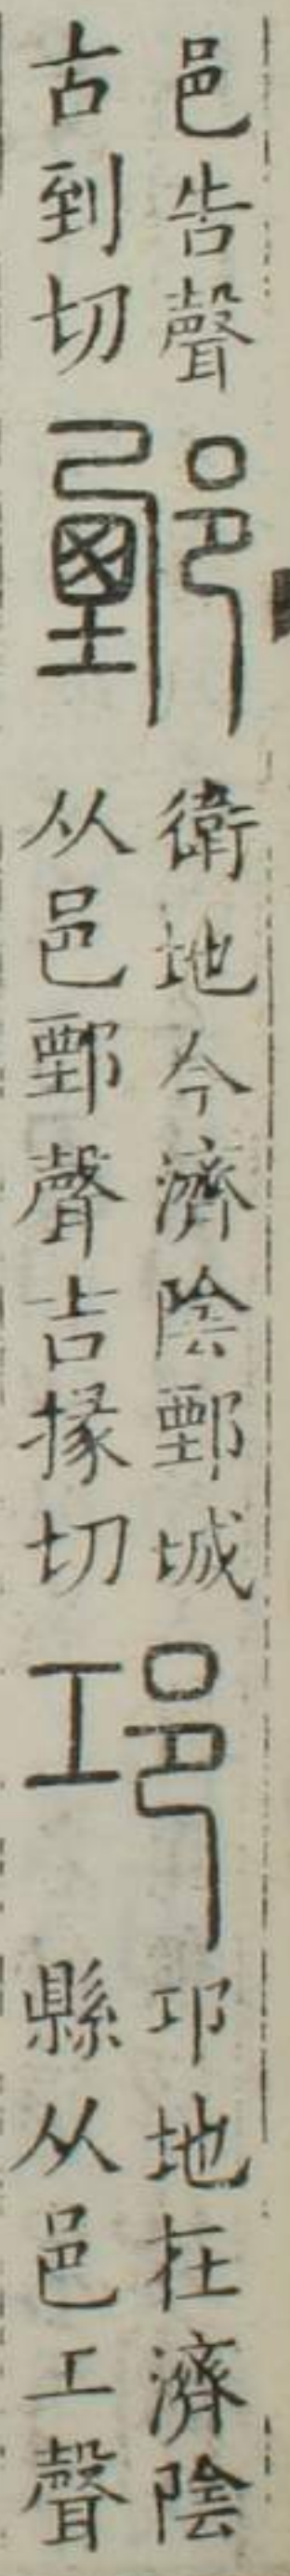 邑告聲
古到切
鄄
衛地今濟陰鄄城
从邑鄄聲吉掾切
邛
邛地在濟陰
縣从邑工聲